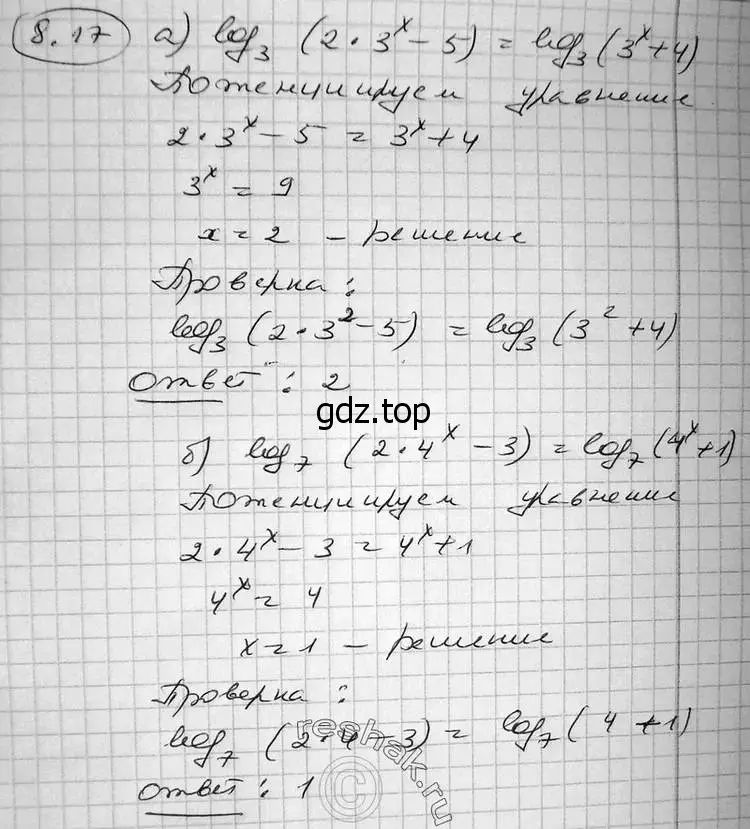 8.17 а) log₃ (2 · 3ˣ − 5) = log₃ (3ˣ + 4)
Потенциируем уравнение
2 · 3ˣ − 5 = 3ˣ + 4
3ˣ = 9
x = 2 – решение
Проверка:
log₃ (2 · 3² − 5) = log₃ (3² + 4)
Ответ: 2
gdz.top
б) log₇ (2 · 4ˣ − 3) = log₇ (4ˣ + 1)
Потенциируем уравнение
2 · 4ˣ − 3 = 4ˣ + 1
4ˣ = 4
x = 1 – решение
Проверка:
log₇ (2 · 4 − 3) = log₇ (4 + 1)
Ответ: 1
reshak.ru
©